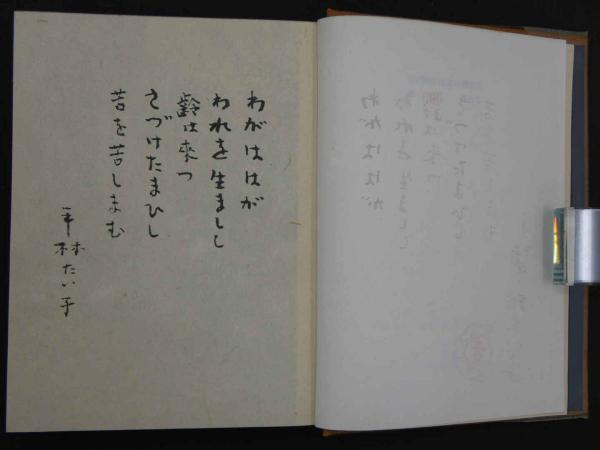 わがははが
われを生ましし
齢は來つ
さづけたまひし
苦を苦しまむ
平林たい子